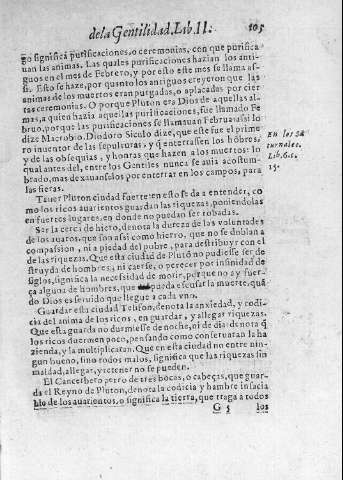 de la Gentilidad. Lib. II. 105
go significa purificaciones, o ceremonias, con que purifica
uan las animas. Las quales purificaciones hazian los anti-
guos en el mes de Febrero, y por esto este mes se llama as-
si. Esto se haze, por quanto los antiguos creyeron que las
animas de los muertos eran purgadas, o aplacadas por cier
tas ceremonias. O porque Pluton era Dios de aquellas al-
mas, a quien hazia aquellas purificaciones, fue llamado Fe
bruo, porque las purificaciones se llamauan Februa: assi lo
dize Macrobio. Diodoro Siculo dize, que este fue el prime
ro inuentor de las sepulturas, y q̃ enterrassen los hõbres,
y de las obsequias, y honras que hazen a los muertos: lo
qual antes del, entre los Gentiles nunca se auia acostum-
brado, mas dexauanlos por enterrar en los campos, para
las fieras.
En los Sa
turnales.
Lib. 6. c.
15.
Tener Pluton ciudad fuerte: en esto se da a entender, co
mo los ricos auarientos guardan las riquezas, poniendolas
en fuertes lugares, en donde no puedan ser robadas.
Ser la cerca de hierro, denota la dureza de las voluntades
de los auaros, que son assi como hierro, que no se doblan a
compassion, ni a piedad del pobre, para destribuyr con el
de las riquezas. Que esta ciudad de Plutõ no pudiesse ser de
struyda de hombres, ni caerse, o perecer por infinidad de
siglos, significa la necessidad de morir, porque no ay fuer-
ça alguna de hombres, que pueda escusar la muerte, quã
do Dios es seruido que llegue a cada vno.
Guardar esta ciudad Tesifon, denota la anxiedad, y codi-
cia del animo de los ricos, en guardar, y allegar riquezas.
Que esta guarda no durmiesse de noche, ni de dia: denota q̃
los ricos duermen poco, pensando como conseruaran la ha
zienda, y la multiplicaran. Que en esta ciudad no entre nin-
gun bueno, sino todos malos, significa que las riquezas sin
maldad, allegar, y retener no se pueden.
El Cancerbero, perro de tres bocas, o cabeças, que guar-
da el Reyno de Pluton, denota la codicia y hambre insacia
ble de los auarientos, o significa la tierra, que traga a todos
G 5 los